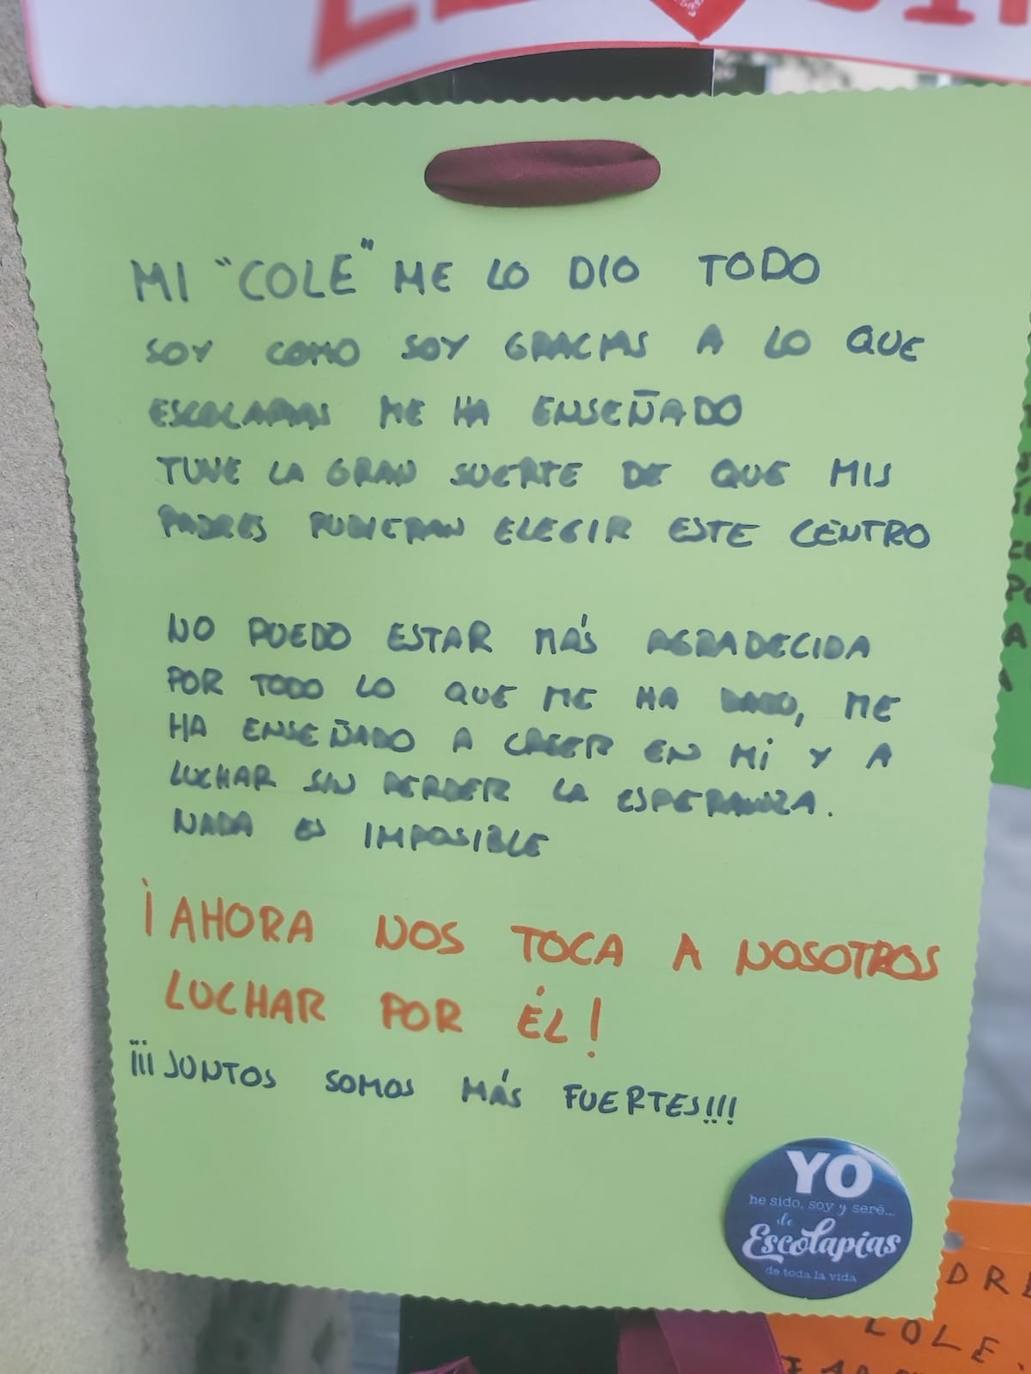 MI "COLE" ME LO DIO TODO
SOY COMO SOY GRACIAS A LO QUE
ESCOLAPIAS ME HA ENSEÑADO
TUVE LA GRAN SUERTE DE QUE MIS
PADRES PUDIERAN ELEGIR ESTE CENTRO
NO PUEDO ESTAR MÁS AGRADECIDA
POR TODO LO QUE ME HA DADO, ME
HA ENSEÑADO A CREER EN MÍ Y A
LUCHAR SIN PERDER LA ESPERANZA.
NADA ES IMPOSIBLE
¡AHORA NOS TOCA A NOSOTROS
LUCHAR POR ÉL!
¡¡¡JUNTOS SOMOS MÁS FUERTES!!!
YO
he sido, soy y seré...
de
Escolapias
de toda la vida